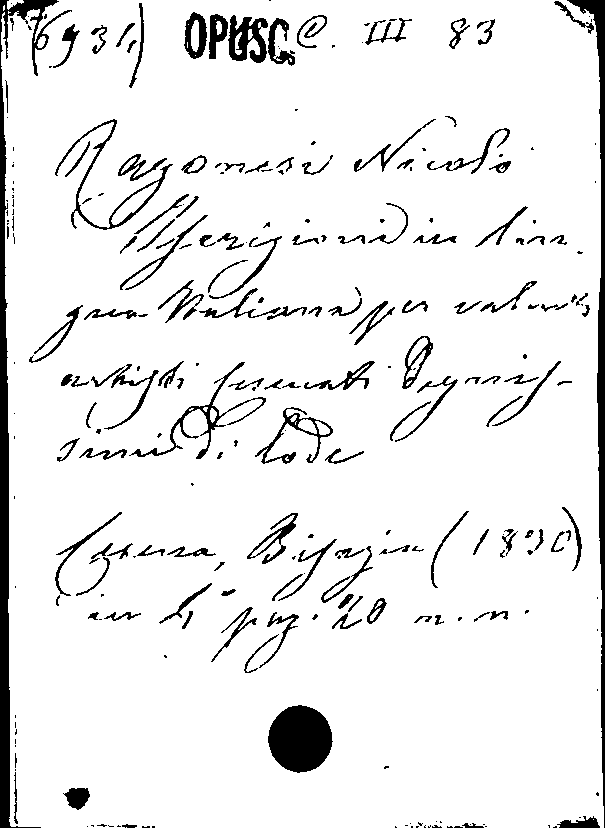 (6931) OPUSC. C. III 83
Ragonesi Nicolò
Iscrizioni in lin-
gua Italiana per valenti
artisti Cesenati degnis-
simi di lode
Cesena, Bisazia (1830)
in 4° pag. 20 n. n.